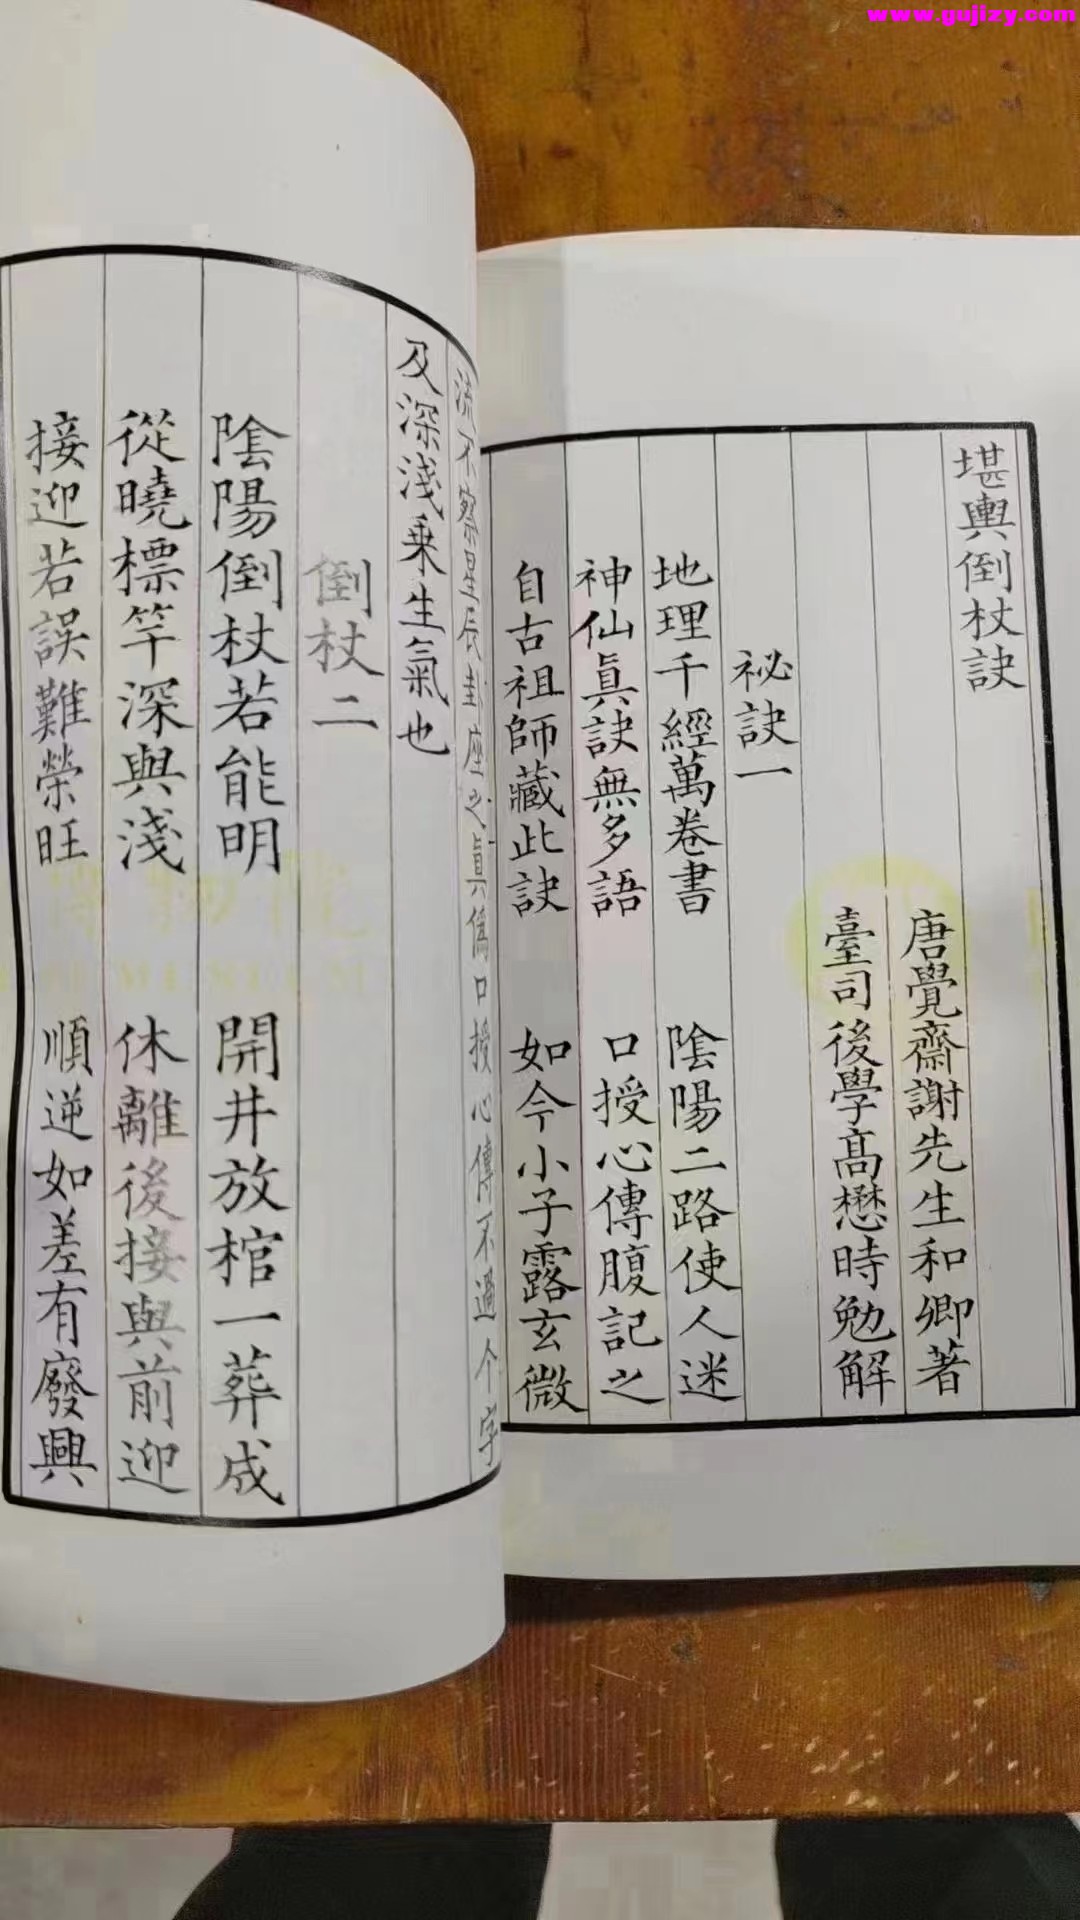 www.gujizy.com
堪輿倒杖訣
唐覺齋謝先生和卿著
臺司後學髙懋時勉解
祕訣一
地理千經萬卷書 陰陽二路使人迷
神仙眞訣無多語 口授心傳腹記之
自古祖師藏此訣 如今小子露玄微
流不察星辰卦座之眞僞口授心傳不過个字
及深淺乗生氣也
倒杖二
陰陽倒杖若能明 開井放棺一葬成
從曉標竿深與淺 休離後接與前迎
接迎若誤難榮旺 順逆如差有廢興